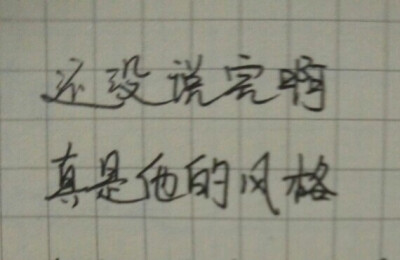 还没说完啊
真是他的风格